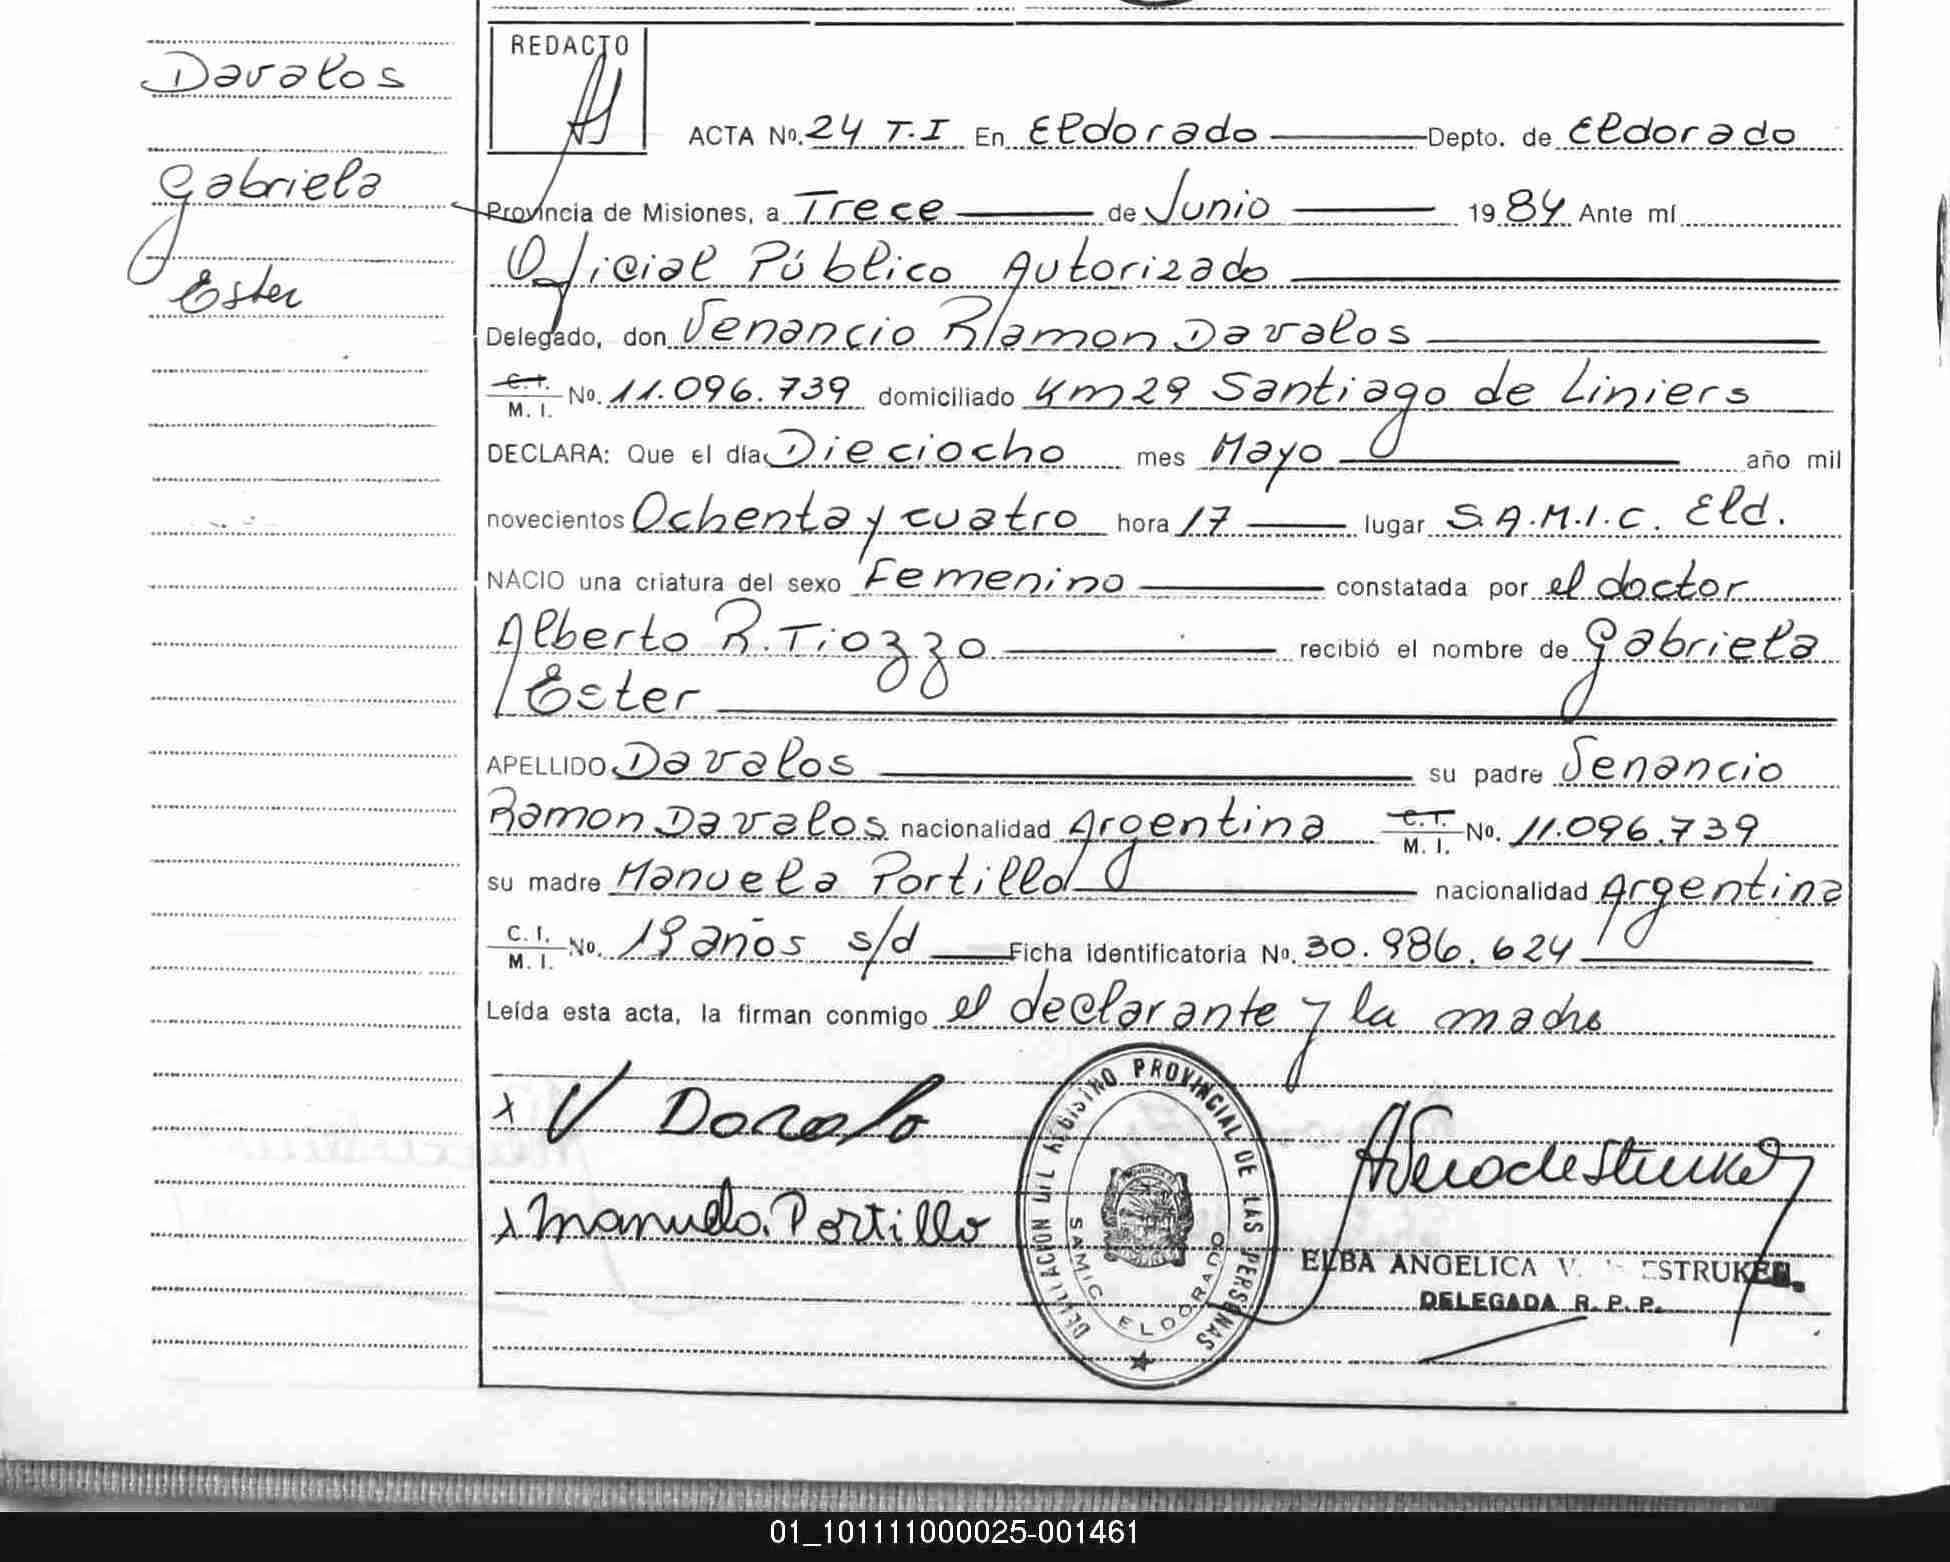 Davalos
Gabriela
Ester
REDACTO
ACTA No. 24 T.I En Eldorado Depto. de Eldorado
Provincia de Misiones, a Trece de Junio 1984 Ante mí
Oficial Público Autorizado
Delegado, don Venancio Ramon Davalos
C.I. M. I. No. 11.096.739 domiciliado Km 29 Santiago de Liniers
DECLARA: Que el día Dieciocho mes Mayo año mil
novecientos Ochenta y cuatro hora 17 lugar S.A.M.I.C. Eld.
NACIO una criatura del sexo Femenino constatada por el doctor
Alberto R. Tiozzo recibió el nombre de Gabriela
Ester
APELLIDO Davalos su padre Venancio
Ramon Davalos nacionalidad Argentina C.I. M. I. No. 11.096.739
su madre Manuela Portillo nacionalidad Argentina
C. I. M. I. No. 19 años s/d Ficha identificatoria No. 30.986.624
Leída esta acta, la firman conmigo el declarante y la madre
x V Davalo
x Manuela Portillo
REGISTRO PROVINCIAL DE LAS PERSONAS
SAMIC ELDORADO
ELBA ANGELICA V. ESTRUKEL
DELEGADA R. P. P.
01_101111000025-001461